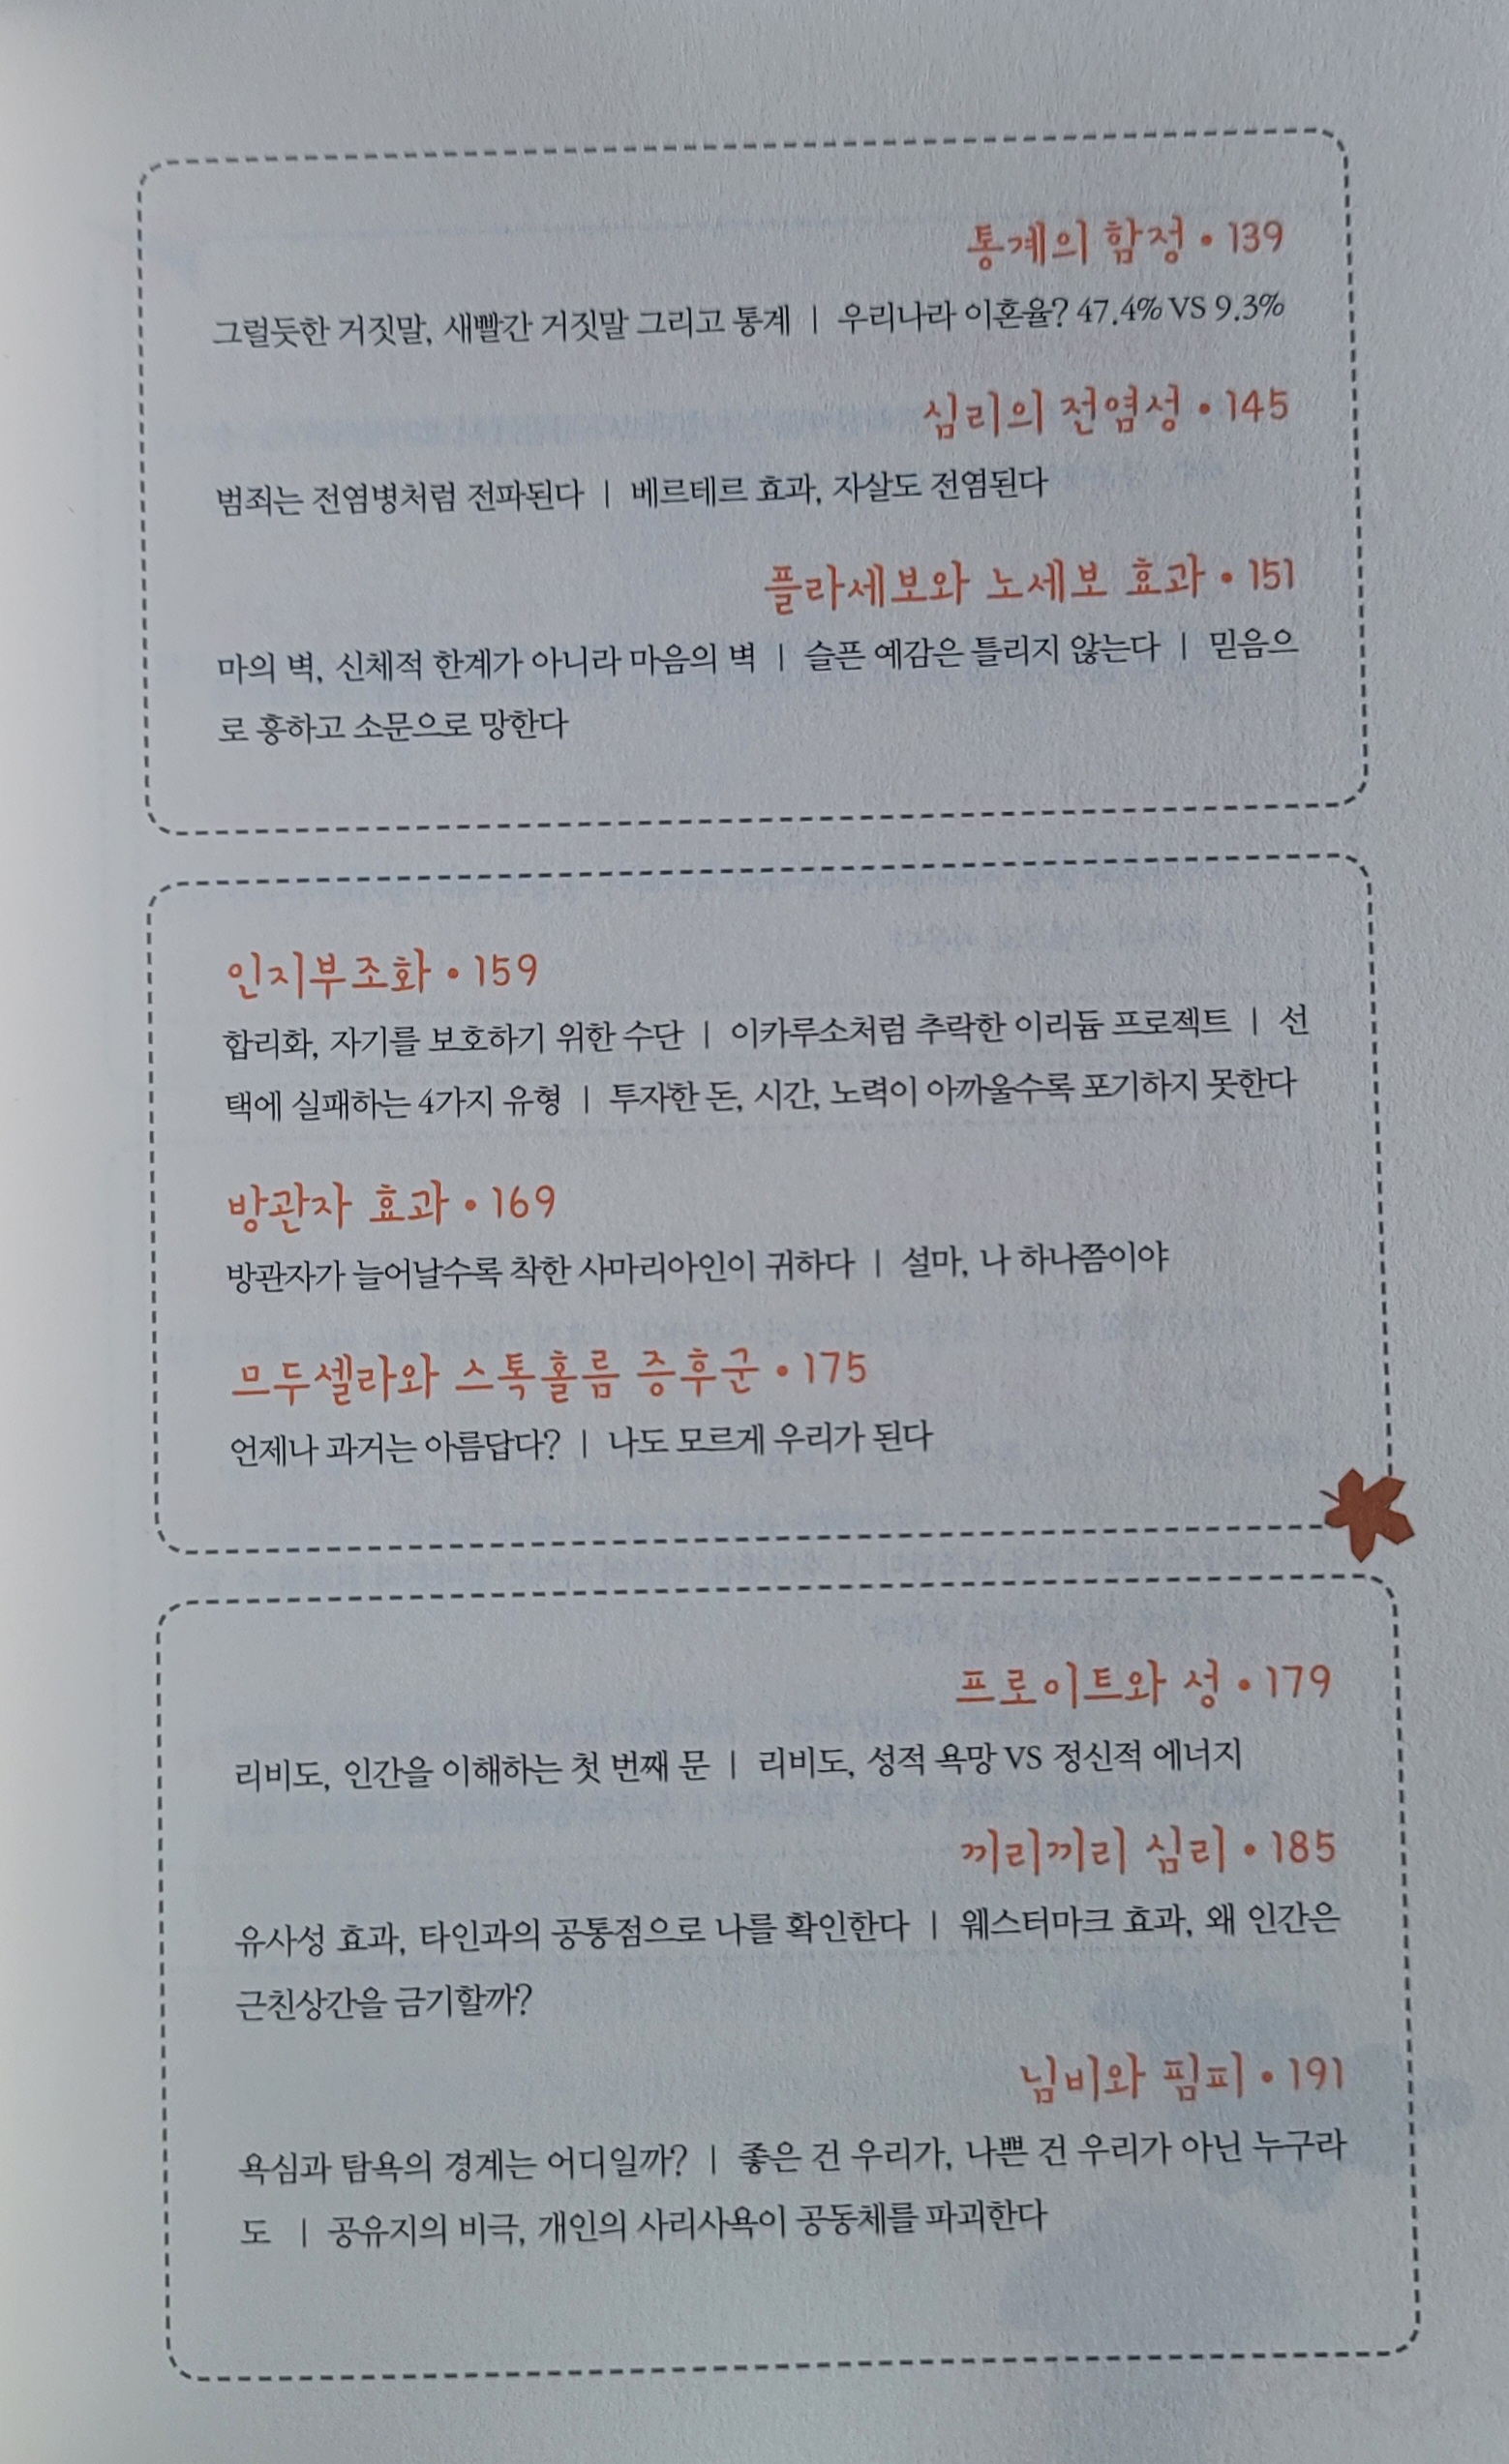 통계의 함정 • 139
그럴듯한 거짓말, 새빨간 거짓말 그리고 통계 | 우리나라 이혼율? 47.4% VS 9.3%
심리의 전염성 • 145
범죄는 전염병처럼 전파된다 | 베르테르 효과, 자살도 전염된다
플라세보와 노세보 효과 • 151
마의 벽, 신체적 한계가 아니라 마음의 벽 | 슬픈 예감은 틀리지 않는다 | 믿음으
로 흥하고 소문으로 망한다
인지부조화 • 159
합리화, 자기를 보호하기 위한 수단 | 이카루소처럼 추락한 이리듐 프로젝트 | 선
택에 실패하는 4가지 유형 | 투자한 돈, 시간, 노력이 아까울수록 포기하지 못한다
방관자 효과 • 169
방관자가 늘어날수록 착한 사마리아인이 귀하다 | 설마, 나 하나쯤이야
므두셀라와 스톡홀름 증후군 • 175
언제나 과거는 아름답다? | 나도 모르게 우리가 된다
프로이트와 성 • 179
리비도, 인간을 이해하는 첫 번째 문 | 리비도, 성적 욕망 VS 정신적 에너지
끼리끼리 심리 • 185
유사성 효과, 타인과의 공통점으로 나를 확인한다 | 웨스터마크 효과, 왜 인간은
근친상간을 금기할까?
님비와 핌피 • 191
욕심과 탐욕의 경계는 어디일까? | 좋은 건 우리가, 나쁜 건 우리가 아닌 누구라
도 | 공유지의 비극, 개인의 사리사욕이 공동체를 파괴한다